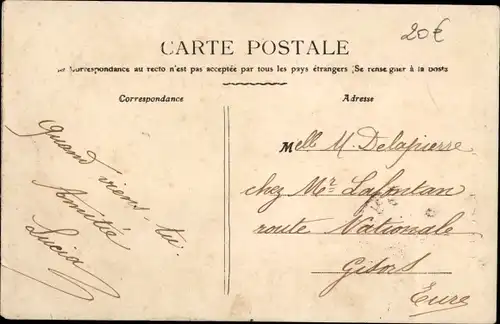 20€
CARTE POSTALE
Correspondance au recto n'est pas acceptée par tous les pays étrangers (Se renseigner à la Poste
Correspondance
Adresse
Quand viens-tu
Amitié
Lucia
Melle M. Delapierre
chez Mr Lafontan
route Nationale
Gisors
Eure